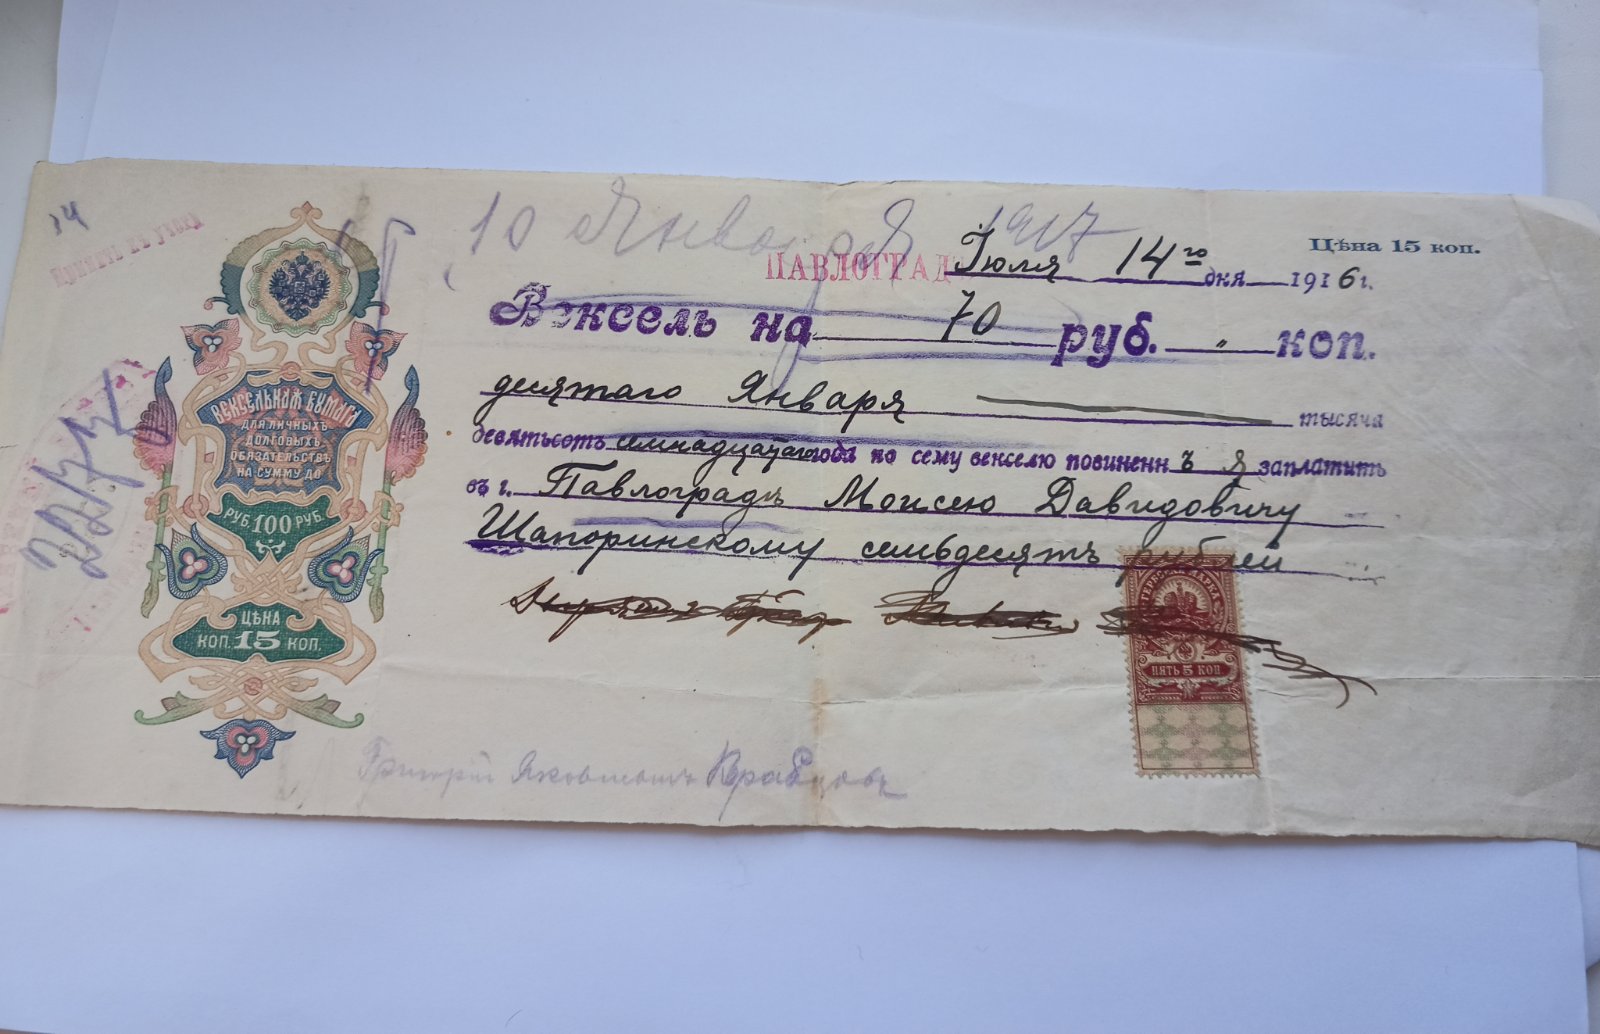 14
Принятъ въ учетъ
10 Января 1917
ПАВЛОГРАД Июля 14го дня 1916 г.
Цѣна 15 коп.
Вексель на 70 руб. „ коп.
десятаго Января тысяча
девятьсотъ семнадцатаго года по сему векселю повиненнъ я заплатить
въ г. Павлоградъ Моисею Давидовичу
Шапоринскому семьдесятъ рублей
ВЕКСЕЛЬНАЯ БУМАГА
ДЛЯ ЛИЧНЫХЪ
ДОЛГОВЫХЪ
ОБЯЗАТЕЛЬСТВЪ
НА СУММУ ДО
РУБ. 100 РУБ.
ЦѢНА
КОП. 15 КОП.
ГЕРБОВАЯ МАРКА
ПЯТЬ 5 КОП
Григорій Яковлевичъ Кравцовъ